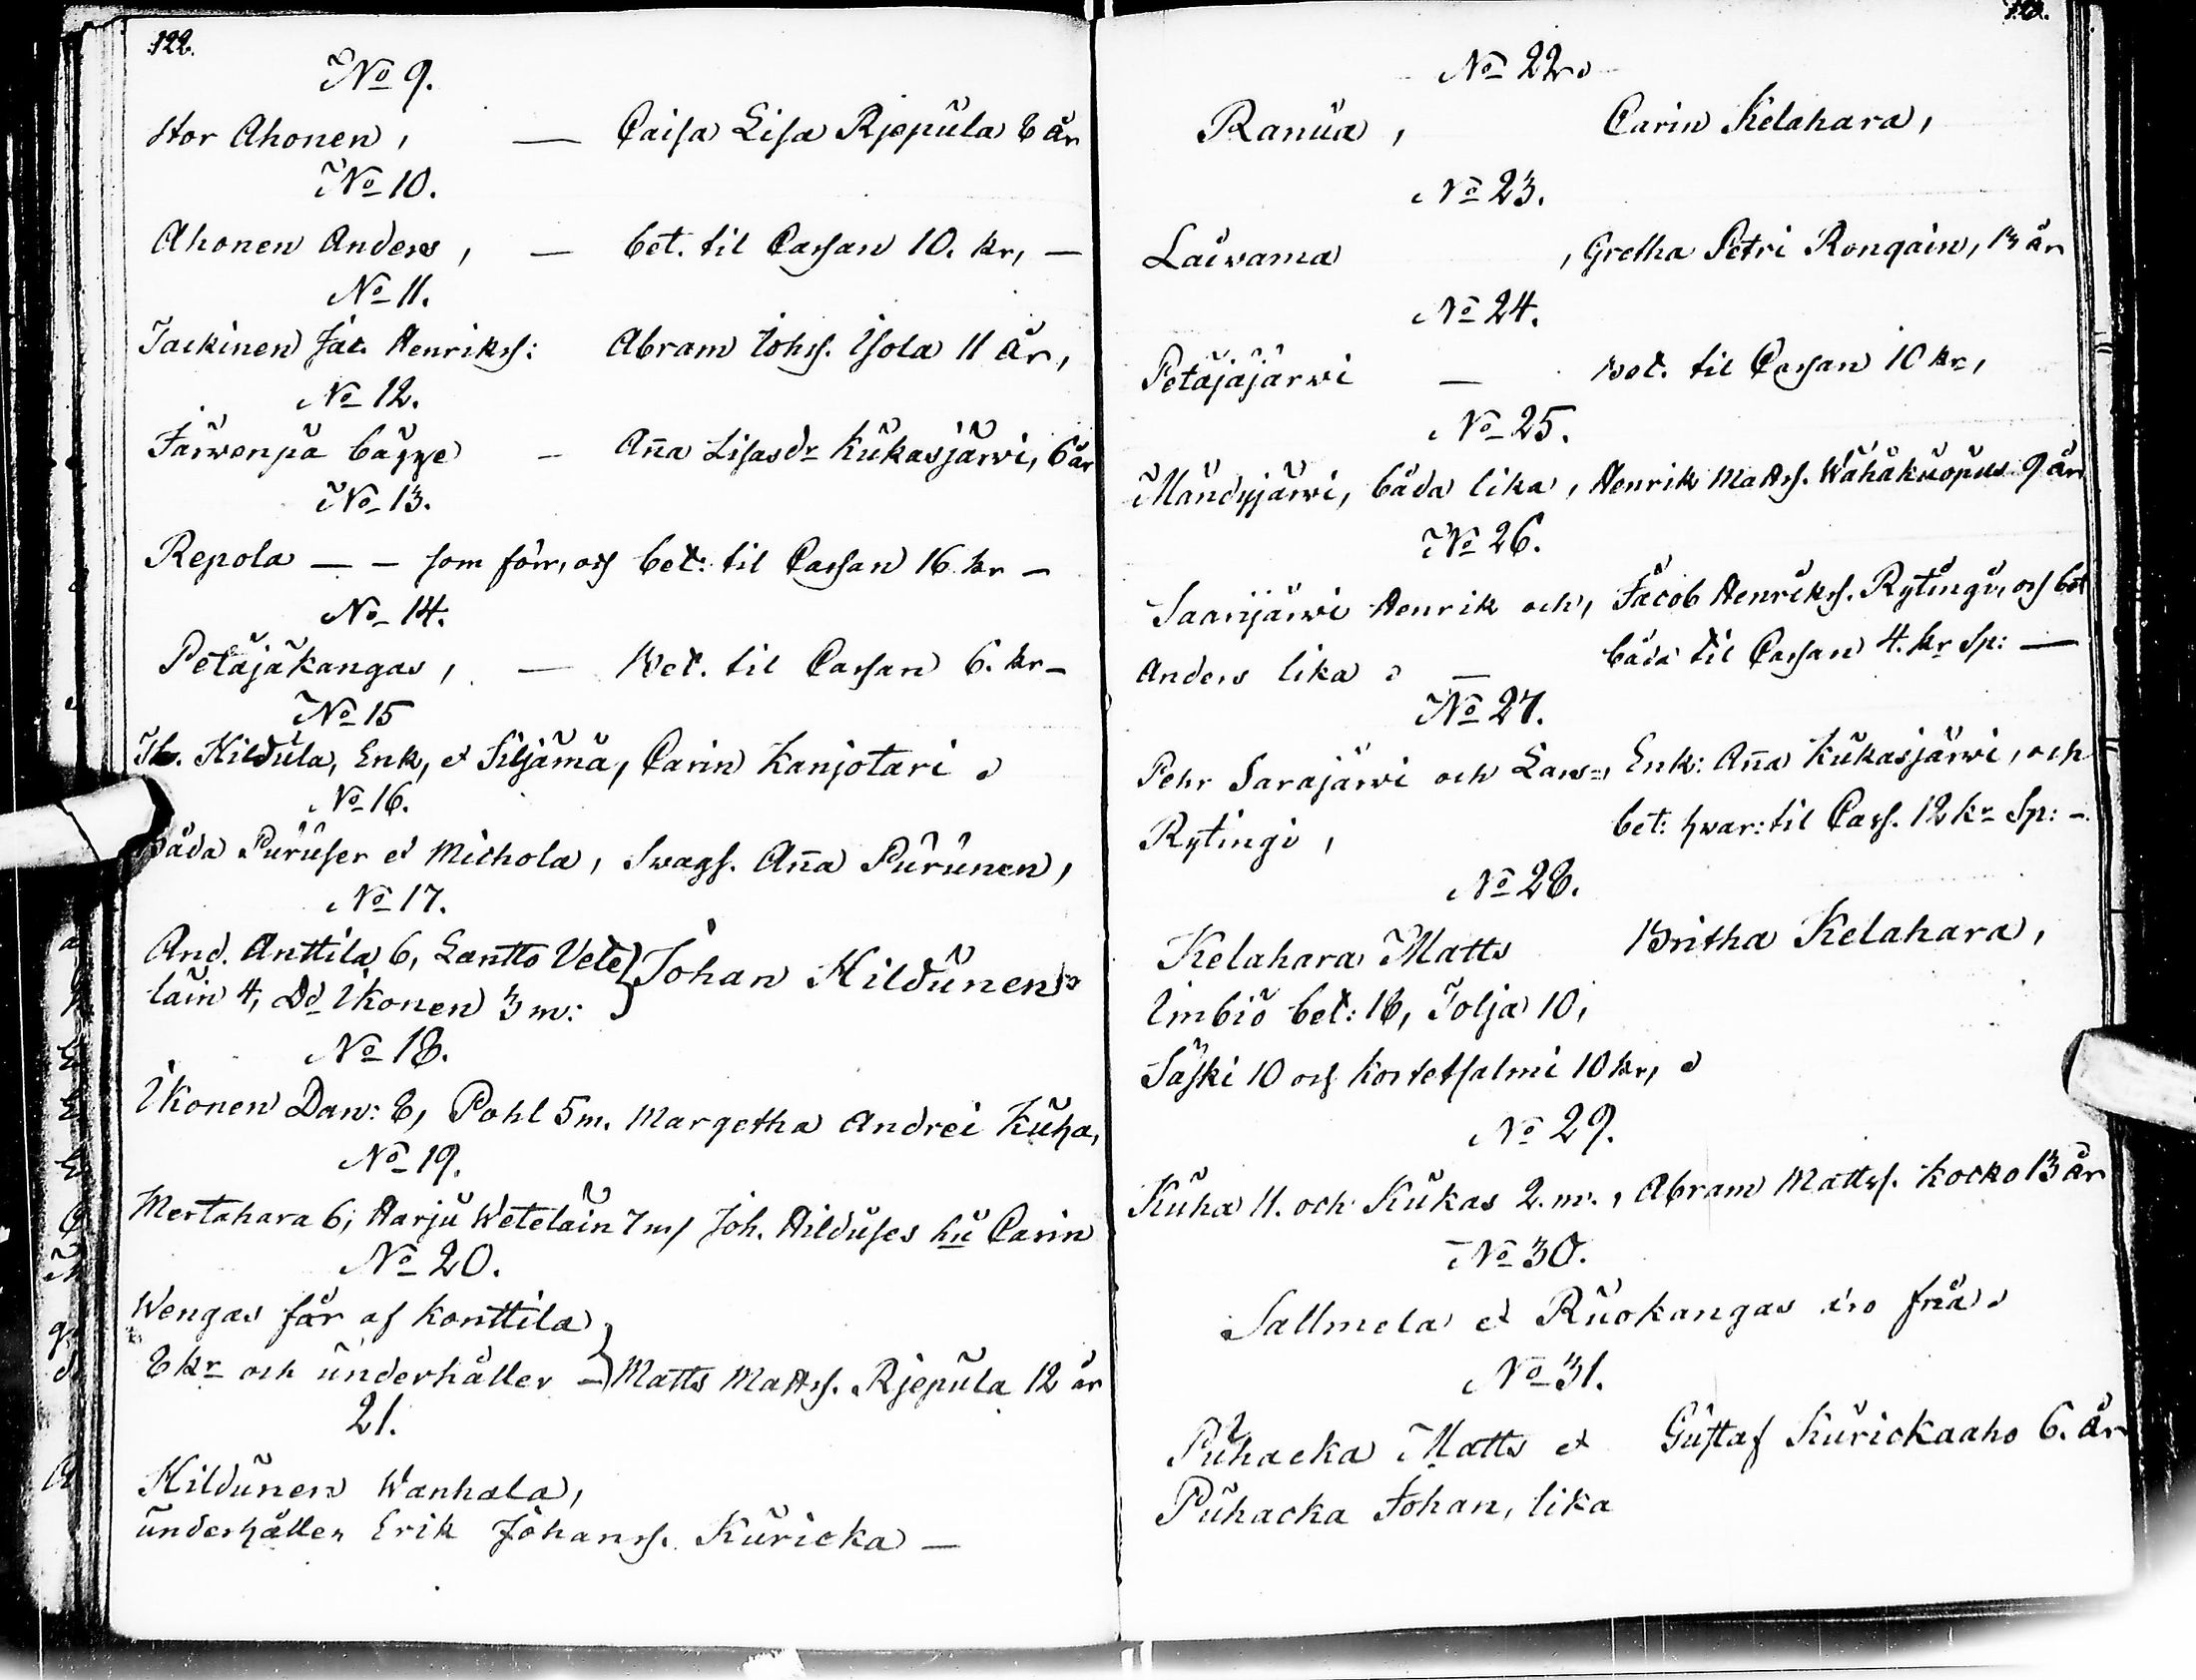 122.
No 9.
Stor Ahonen, — Caisa Lisa Rjepula 8 år
No 10.
Ahonen Anders, — bet. til Cassan 10. kr, —
No 11.
Jackinen Jac. Henrikss: Abram Johss. Isola 11 år,
No 12.
Järwenpä bägge – Aña Lisasdr Kukasjärwi, 6 år
No 13.
Repola — — som förr, och bet: til Cassan 16 kr —
No 14.
Petäjäkangas, — Bet. til Cassan 6. kr —
No 15
Hildula, Enk, et Siljämä, Carin Kanjotari
No 16.
Båda Puruser et Michola, Swags. Aña Purunen,
No 17.
And. Anttila 6, Lantto Vete
läin 4, Do Ikonen 3 m: } Johan Hildunen
No 18.
Ikonen Dan: 8, Pohl 5 m. Margetha Andrei Kuha,
No 19.
Mertahara 6, Harju Weteläin 7 m, Joh. Hilduses hu Carin
No 20.
Wengas får af Konttila
8 kr och underhåller — } Matts Matss. Rjepula 12 år
21.
Hildunen Wanhala,
underhåller Erik Johanss. Kuricka —
No 22.
Ranua, Carin Kelahara,
No 23.
Laiwama, Gretha Petri Ronqain, 13 år
No 24.
Petäjäjärwi — Bet. til Cassan 10 kr,
No 25.
Mändyjärwi, båda lika, Henrik Matss. Wähäkuopus 9 år
No 26.
Saarijärwi Henrik och, Jacob Henrikss. Rytingi, och bet
Anders lika — båda til Cassan 4. kr Sp: —
No 27.
Pehr Sarajärwi och Lars, Enk: Aña Kukasjärwi, och
Rytingi, bet: hwar: til Cass. 12 kr Sp: –
No 28.
Kelahara Matts Britha Kelahara,
Imbiö bet: 18, Tolja 10,
Säski 10 och Kostetsalmi 10 kr,
No 29.
Kuha 11. och Kukas 2. m., Abram Mattss. Kocko 13 år
No 30.
Sallmela et Ruokangas äro fria
No 31.
Puhacka Matts et Gustaf Kurickaaho 6. år
Puhacka Johan, lika